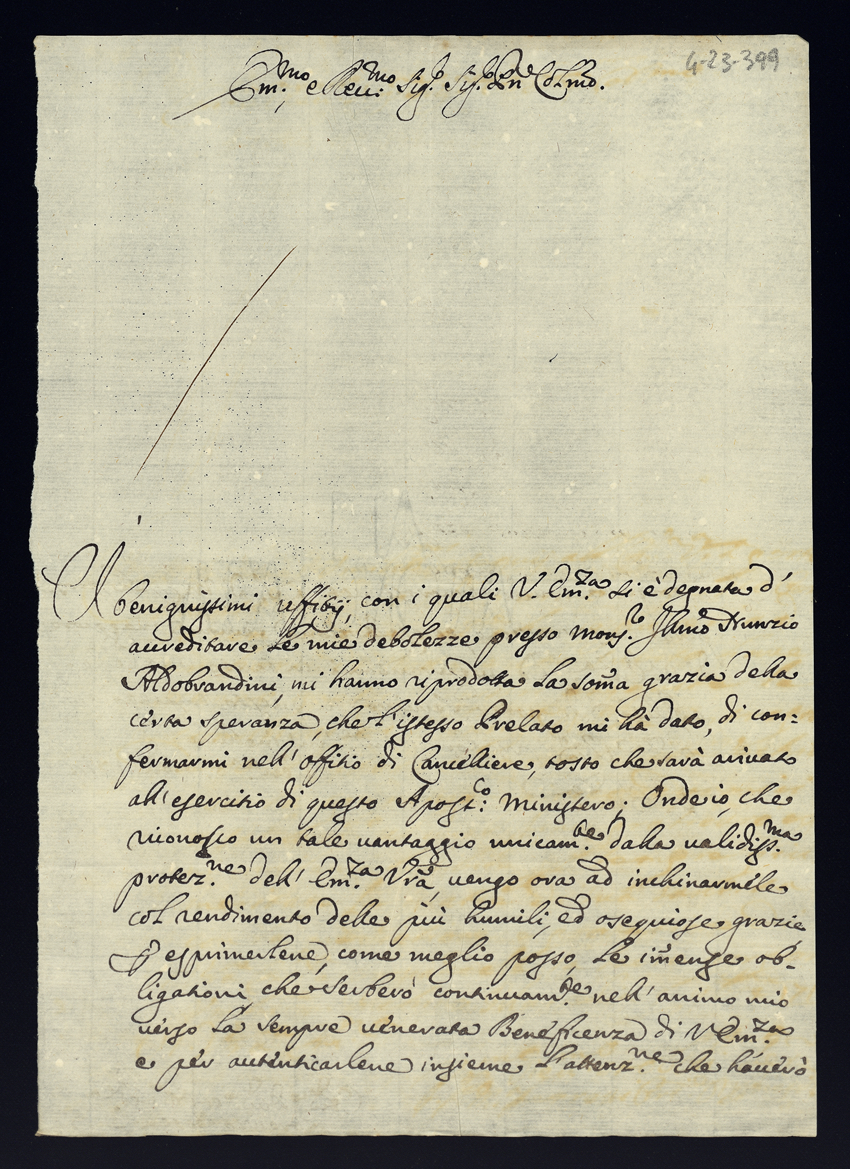 4-23-399
Em.mo, e Rev.mo Sig.r Sig.r Pn Colmo.
I benignissimi uffitij, con i quali V. Em.za si è degnata d'
accreditare le mie debolezze presso Mons.re Illmo Nunzio
Aldobrandini, mi hanno riprodotta la soma grazia della
certa speranza, che l'istesso Prelato mi hà dato, di con=
fermarmi nell'offitio di Cancelliere, tosto che sarà arrivato
all'esercitio di questo Apost.co: Ministero; Onde io, che
riconosco un tale vantaggio unicam.te dalla validiss.ma
protez.ne dell'Em.za Vrã, vengo ora ad inchinarmele
col rendimento delle più humili, ed ossequiose grazie
p esprimerlene, come meglio posso, le im̃ense ob-
ligationi, che serberò continuam.te nell'animo mio
verso la sempre venerata Beneficenza di V Em.za
e per autenticarlene insieme l'attenz.ne che haverò